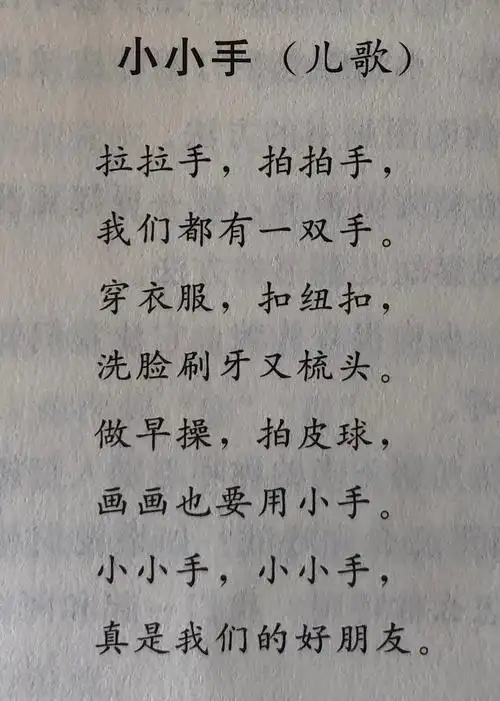 小小手（儿歌）
拉拉手，拍拍手，
我们都有一双手。
穿衣服，扣纽扣，
洗脸刷牙又梳头。
做早操，拍皮球，
画画也要用小手。
小小手，小小手，
真是我们的好朋友。